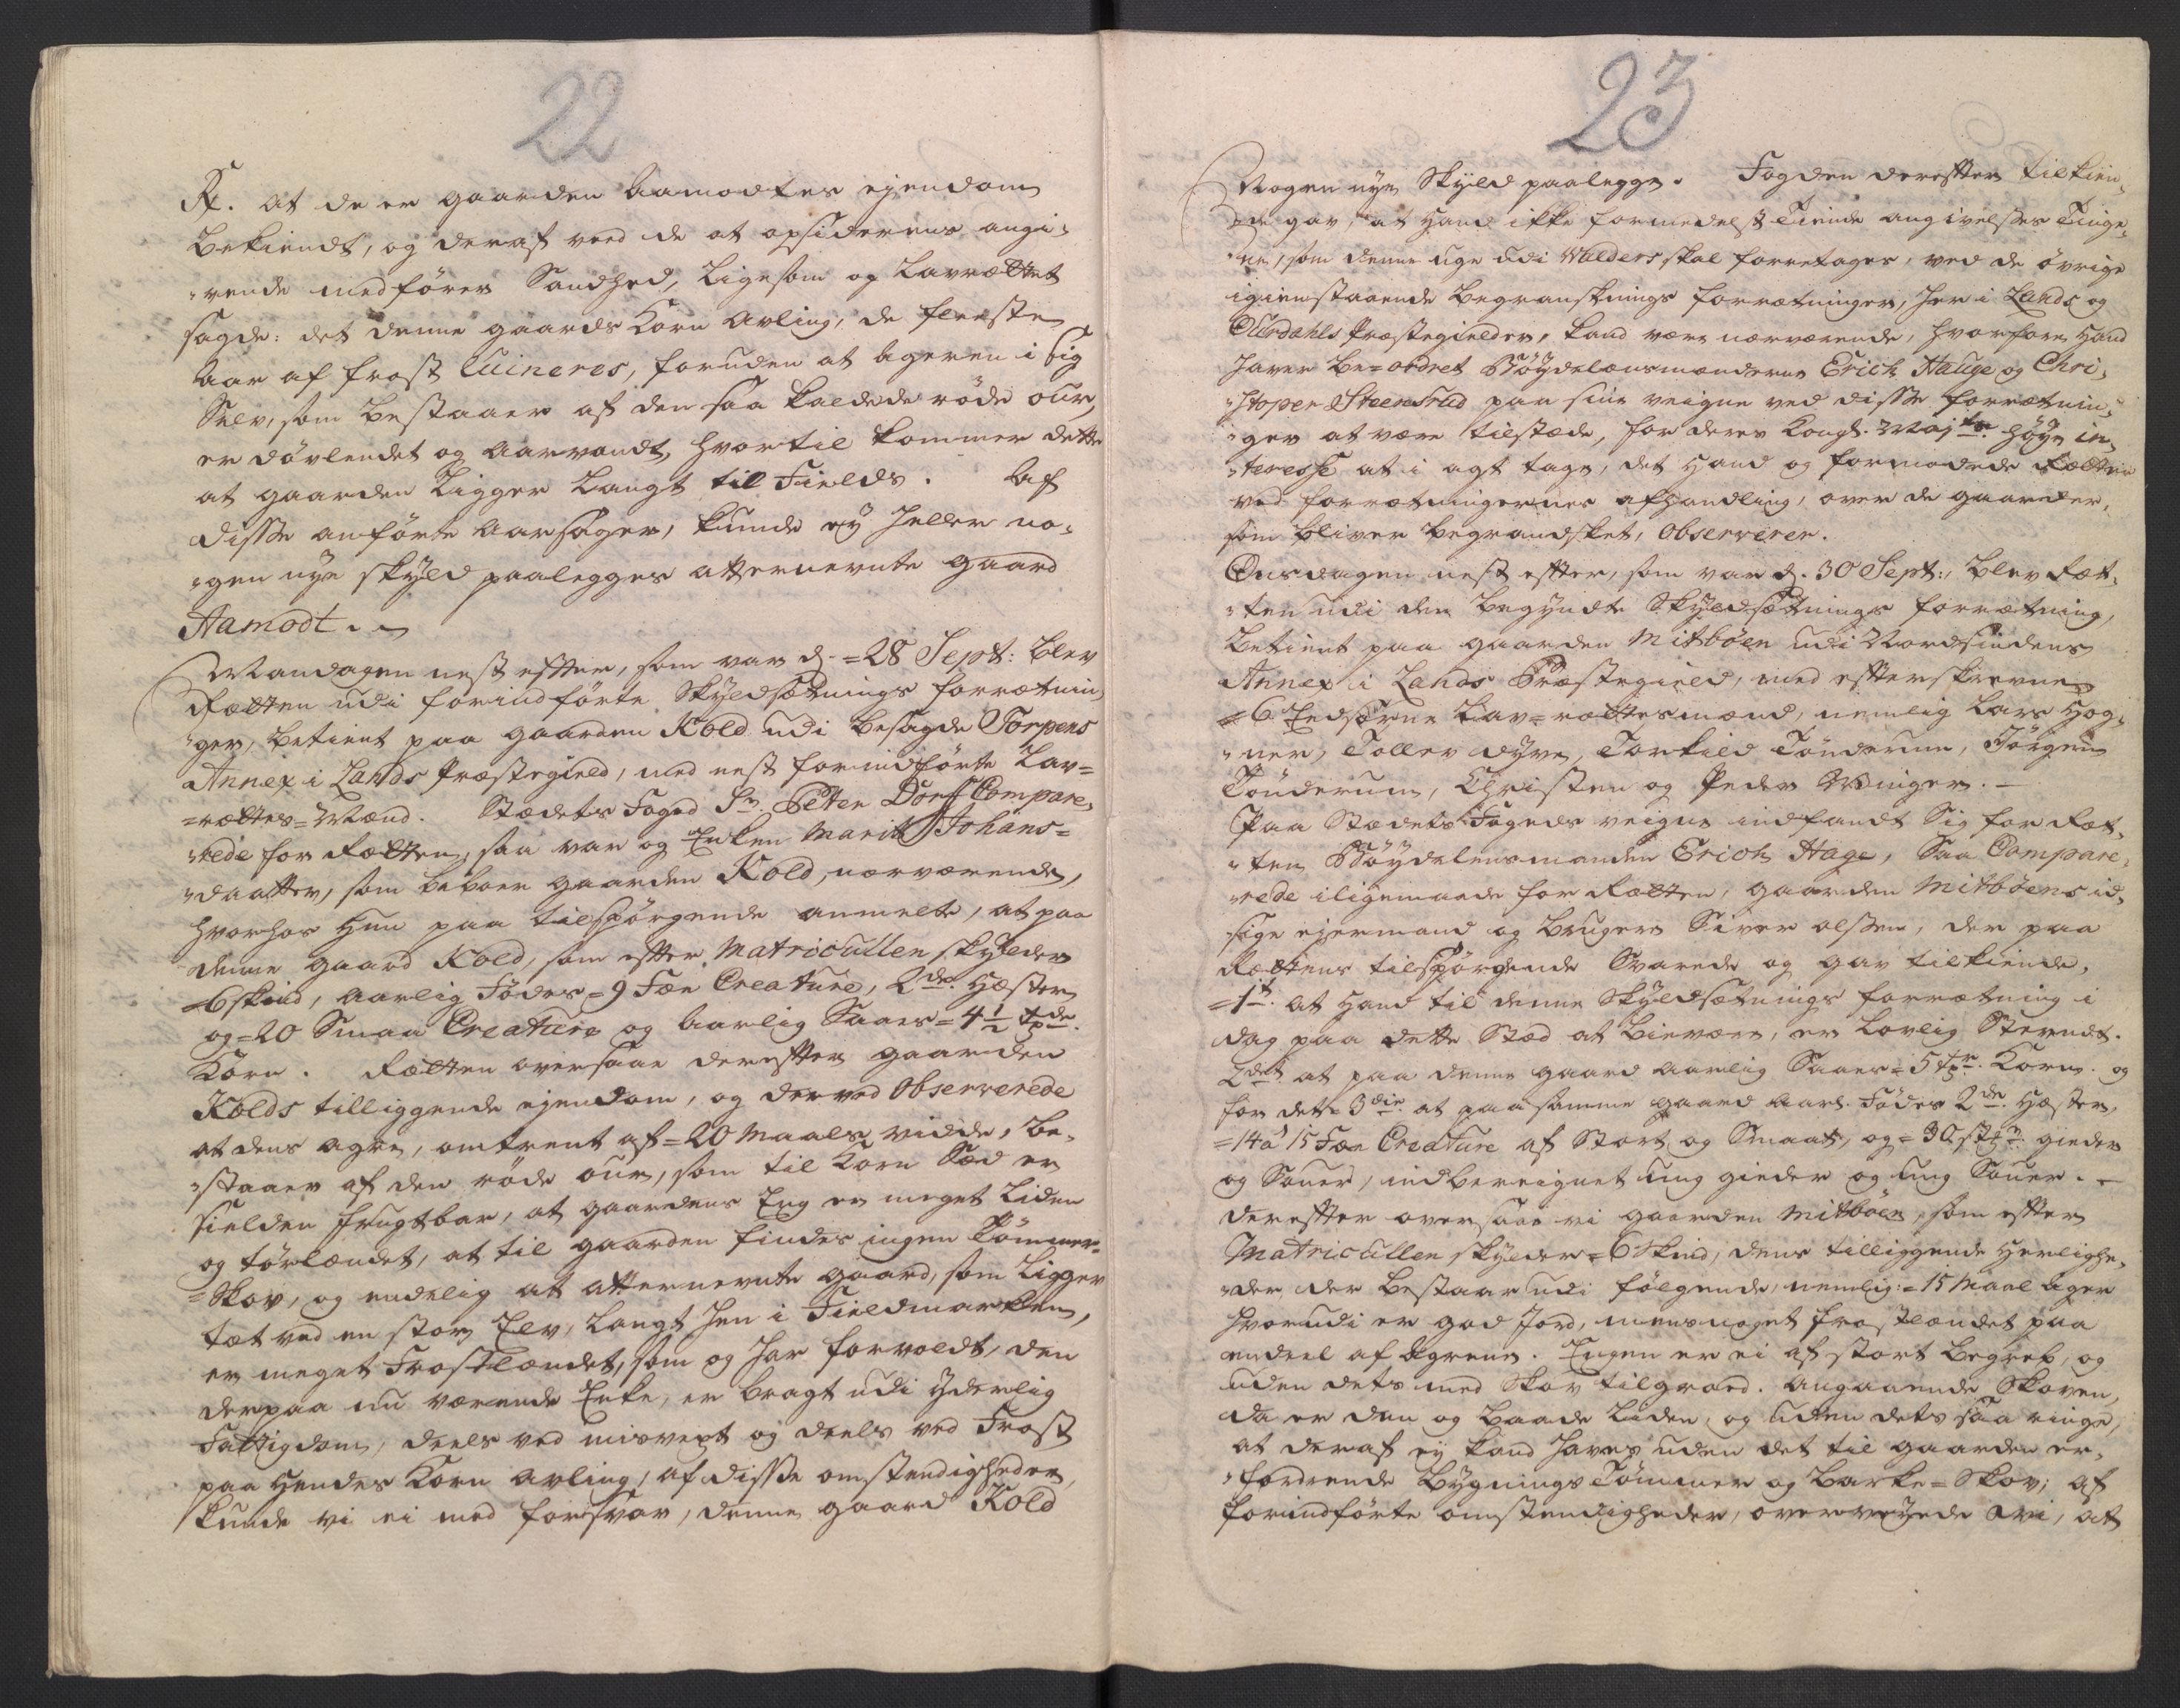 22
R. at de er gaarden Aamodtes ejendom
bekiendt, og deraf veed de at opsiderens angi-
vende medfører Sandhed, ligesom og Lavrættet
sagde: det denne gaards Korn avling, de fleeste
Aar af frost ruineres, foruden at ageren i sig
Selv, som bestaaer af den saa kaldede røde our,
er døvlendet og Aarvandt, hvortil kommer dette
at gaarden ligger langt til Fields. Af
disse anførte aarsager, kunde ey heller no-
gen nye skyld paalegges atternevnte gaard
Aamodt.
Mandagen nest efter, som var d. 28 Sept: blev
Rætten udi forindførte Skyldsætnings forrætnin-
ger, betient paa gaarden Kold udi besagde Torpens
Annex i Lands Præstegield, med nest forindførte Lav-
rættes-Mænd. Stædets Foged Sr. Peter Dorf Compare-
rede for Rætten, saa var og Enken Marit Johans-
daatter, som beboer gaarden Kold, nærværende,
hvorhos hun paa tilspørgende anmelte, at paa
denne gaard Kold, som efter Matricullen skylder
6 skind, aarlig Fødes 9 Fæe Creature, 2de Hæster
og 20 Smaa Creature og Aarlig Saaes 4 1/2 tde
Korn. Rætten oversaae derefter gaarden
Kolds tilliggende ejendom, og derved Observerede
at dens agre, omtrent af 20 Maals vidde, be-
staaer af den røde our, som til Korn Sæd er
sielden frugtbar, at gaardens Eng er meget liden
og tørlændet, at til gaarden findes ingen tømmer-
Skov, og endelig at atternevnte gaard, som ligger
tæt ved en stor Elv, langt hen i Fieldmarken,
er meget Frostlændet, som og har forvoldt, den
derpaa nu værende Enke, er bragt udi yderlig
Fattigdom, deels ved misvext og deels ved Frost
paa hendes Korn avling, af disse omstendigheder
kunde vi ei med forsvar, denne gaard Kold
23
Nogen nye Skyld paalegge. Fogden derefter tilkien-
de gav, at hand ikke formedelst Tiende angivelses Tinge-
ne, som denne uge udi Walders skal forretages, ved de øvrige
igienstaaende begranskninge forrætninger, her i Lands og
Ourdahls Præstegielder, kand være nærværende, hvorfore hand
haver be-ordret Bøydelensmændene Erich Hauge og Chri-
stopher Steensrud paa sine veigne ved disse forrætnin-
ger at være tilstæde, for deres Kongl. Majts. høye in-
teresse at i agt tage, det hand og formodede Rætten
ved forrætningernes afhandling, over de gaarder,
som bliver begrandsket, Observerer.
Onsdagen nest efter, som var d. 30 Sept:, blev Ræt-
ten udi den begyndte Skyldsætnings forrætning,
betient paa gaarden Mitbøen udi Nordsindens
Annex i Lands Præstegield, med efterskrevne
6 Edsorne Lav-rættesmænd, nemlig Lars Hog-
ner, Tollev dyve, Torkild Tønderum, Jørgen
Tønderum, Christen og Peder Winger.
Paa Stædets Fogeds veigne indfandt Sig for Ræt-
ten Bøydelensmanden Erich Hage, Saa Compare-
rede iligemaade for Rætten, gaarden Mitbøens id-
sige ejermand og bruger Siver olsen, der paa
Rættens tilspørgende Svarede og gav tilkiende,
1t. at hand til denne Skyldsætnings forrætning i
dag paa dette Stæd at bievære, er lovlig Stevndt.
2det at paa denne gaard aarlig Saaes 5 tr. Korn. og
for det 3die at paa samme gaard aarl. Fødes 2de Hæster,
14 à 15 Fæe Creature af Stort og Smaat, og 30 stkr gieder
og Souer, indbereignet ung gieder og ung Souer.
derefter oversaae vi gaarden Mitbøen, som efter
Matricullen skylder 6 Skind, dens tilliggende herlighe-
der der bestaar udi følgende, nemlig: 15 Maal ager
hvorudi er god Jord, mens noget frostlændet paa
endeel af Agrene. Engen er ei af stort begreb, og
uden dets med Skov tilgroed. Angaaende Skoven,
da er den og baade liden, og uden dets saa ringe,
at deraf ey kand haves uden det til gaarden er-
fordrende bygnings Tømmer og Barke-Skov; af
forindførte omstendigheder, overveyede vi, at